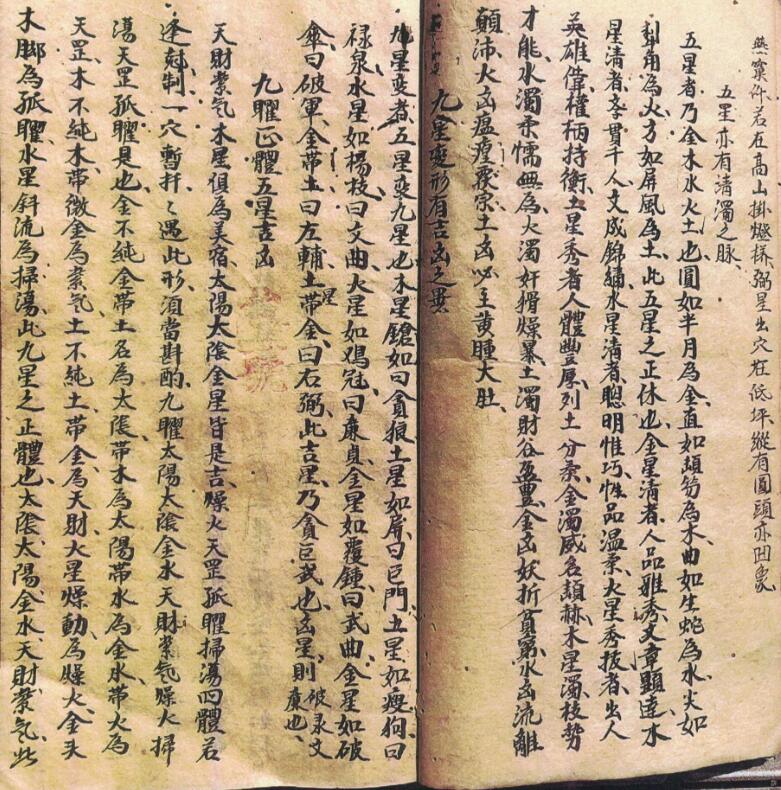 燕窠仰若在高山掛燈樣弼星出穴在低坪縱有圓頭亦凹象
五星亦有清濁之脉
五星者乃金木水火土也圓如半月為金直如頓笏為木曲如生蛇為水尖如
犁角為火方如屏風為土此五星之正休也金星清者人品雅秀文章顯达水
星清者孝貫千人文成錦繡水星清者聰明惟巧性品温柔火星秀拔者出人
英雄偉權柄持衡土星秀者人體豐厚列土分茅金濁威名頡赫木星濁枝勢
才能水濁柔懦無為火濁奸猾燥暴土濁財谷盈豐金凶妖折貧窮水凶流離
顛沛火凶瘟瘽覆宗土凶必主黄腫大肚
九星变形有吉凶之異
九星变者五星变九星也木星鎗如曰貪狼土星如屏曰巨門土星如瘦狗曰
禄泉水星如楊枝曰文曲火星如鴻冠曰廉貞金星如覆鍾曰武曲金星如破
傘曰破軍金帶土曰左輔土帶金曰右弼此吉星乃貪巨武也凶星則破录文廉也
星
九曜正體五星吉凶
天財紫气木星俱為美宿太陽太陰金星皆是吉燥火天罡孤曜掃蕩四體若
逢尅制一穴暫扦〻遇此形須當斟酌九曜太陽太陰金水天財紫気燥火掃
蕩天罡孤曜是也金不純金帶土名為太陰帶木為太陽帶水為金水帶火為
天罡木不純木帶微金為紫気土不純土帶金為天財火星燥動為燥火金头
木脚為孤曜水星斜流為掃蕩此九星之正體也太陰太陽金水天財紫气此